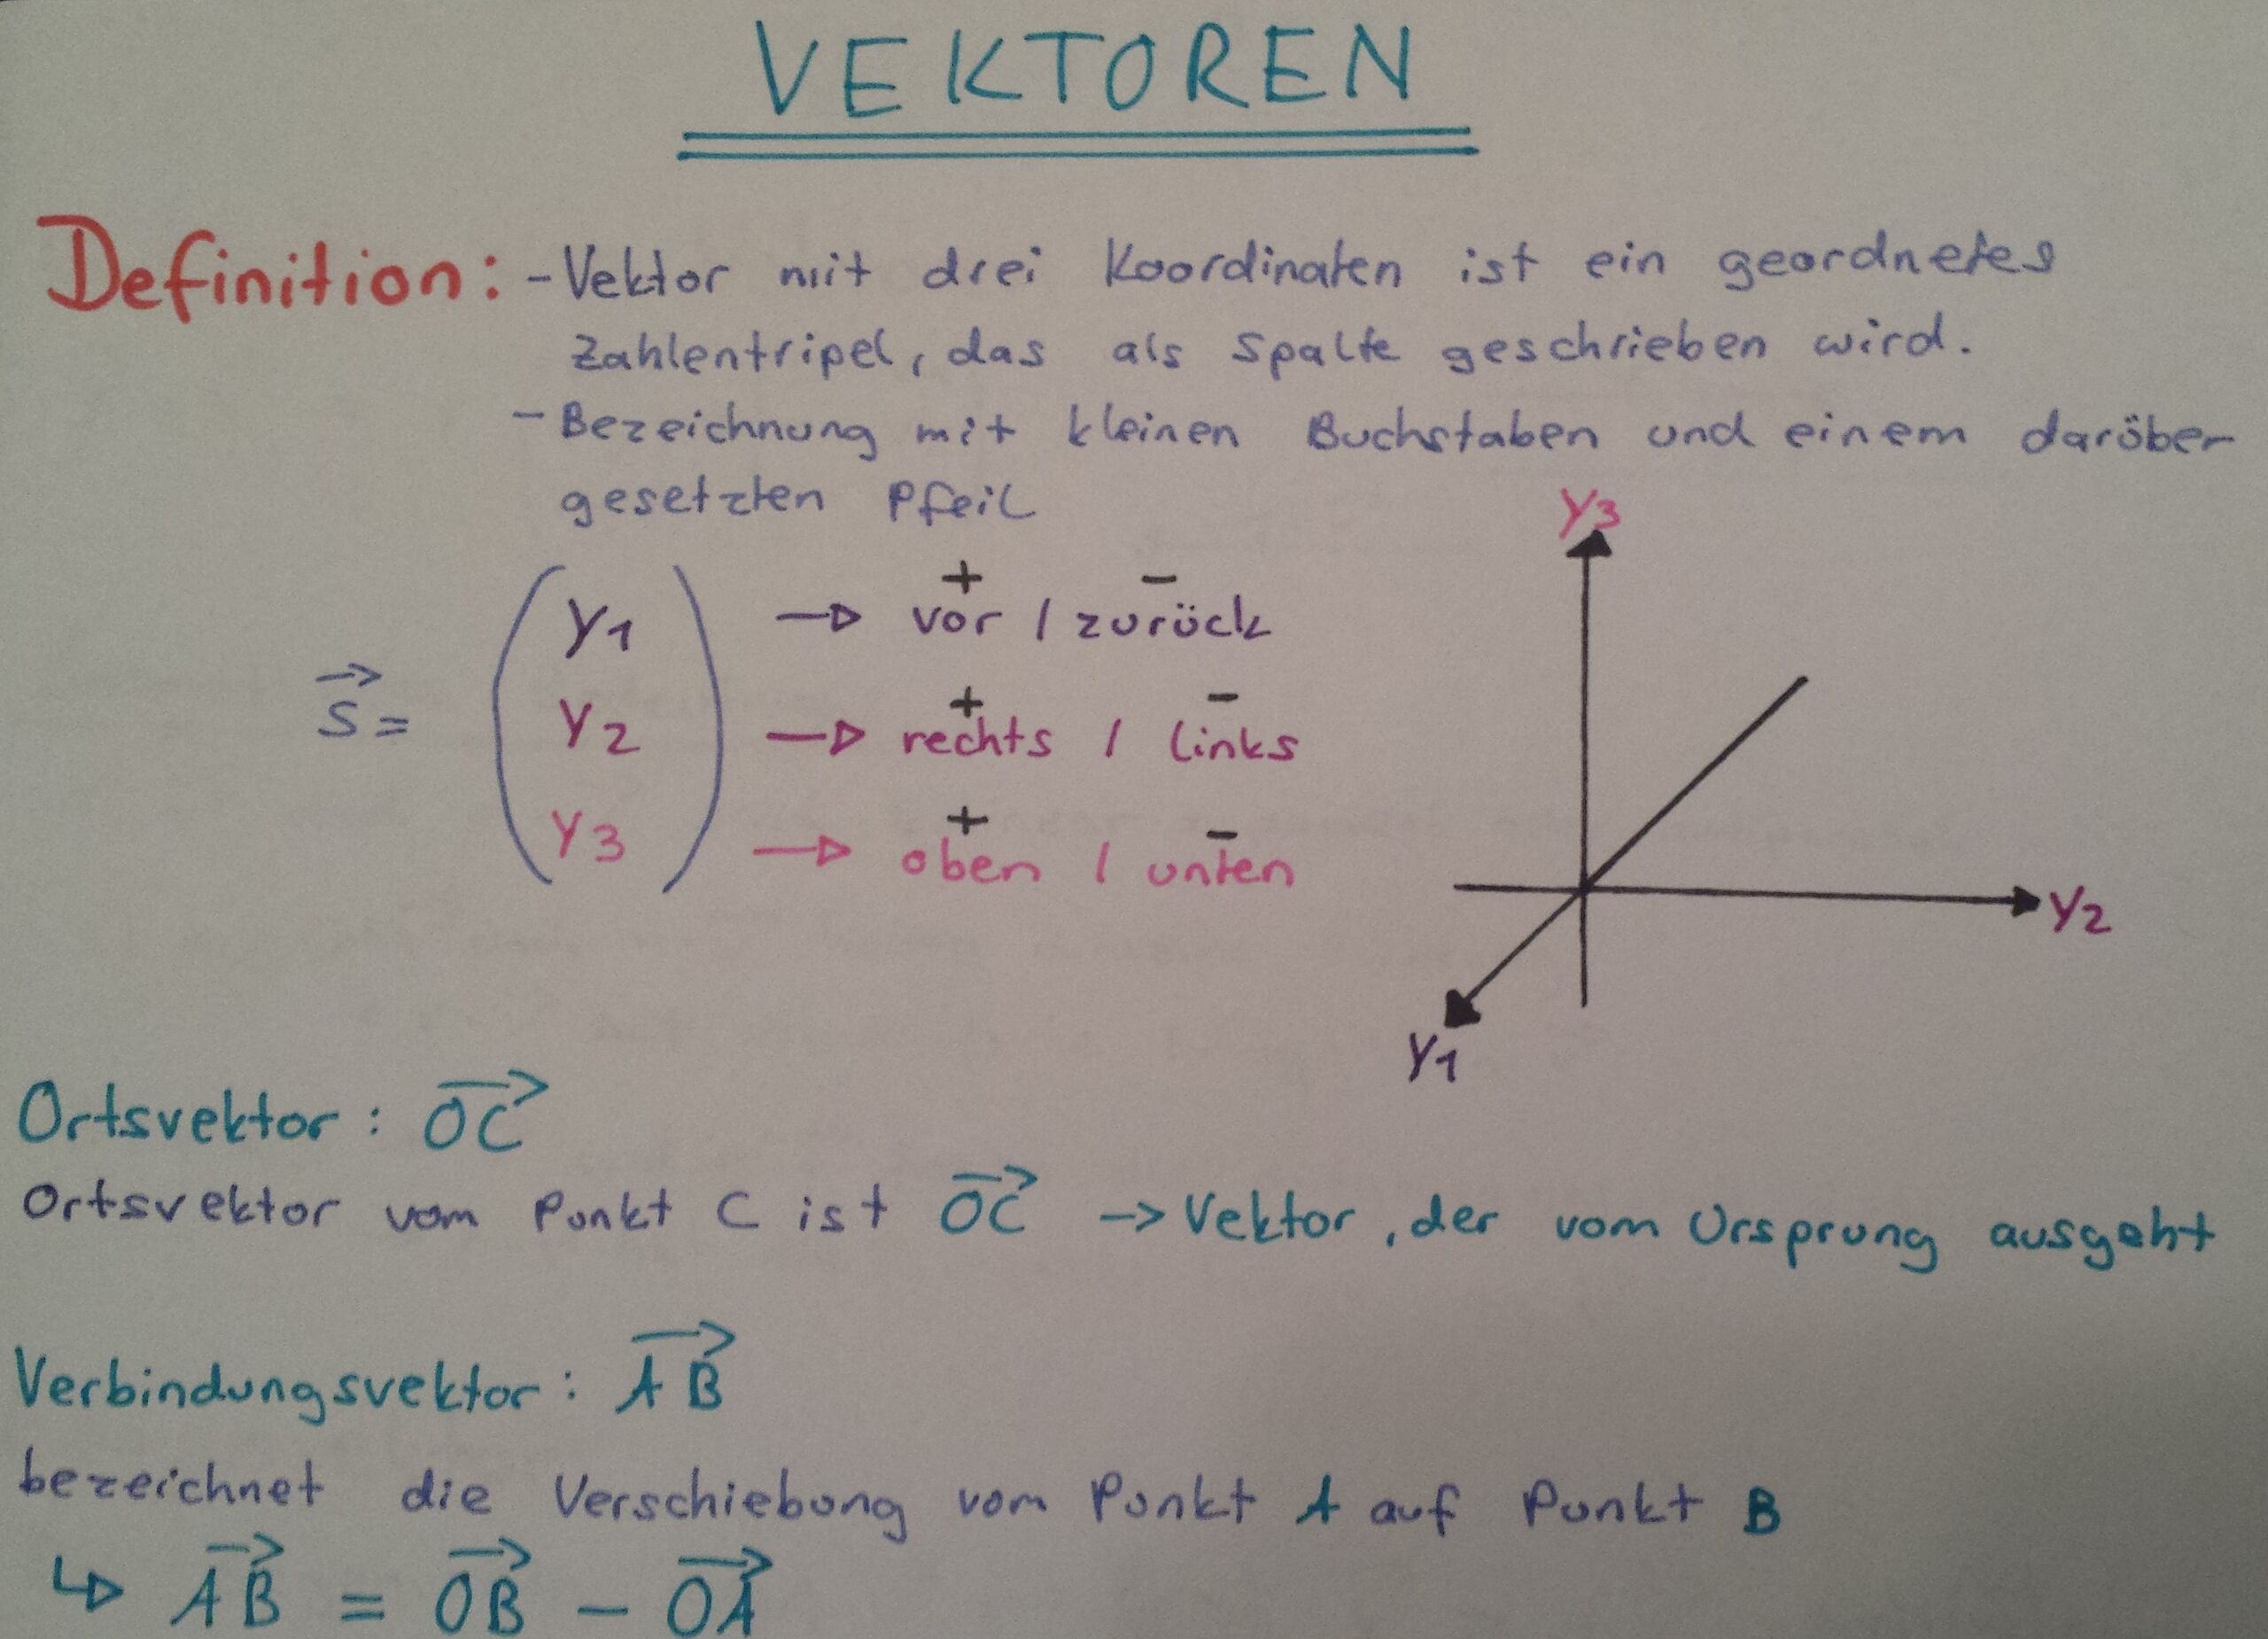 VEKTOREN
Definition: - Vektor mit drei Koordinaten ist ein geordnetes
Zahlentripel, das als Spalte geschrieben wird.
- Bezeichnung mit kleinen Buchstaben und einem darüber
gesetzten Pfeil
y3
+ −
y1 → vor / zurück
+ −
s⃗ = y2 → rechts / links
+ −
y3 → oben / unten
y2
y1
Ortsvektor: O͞C⃗
Ortsvektor vom Punkt C ist O͞C⃗ -> Vektor, der vom Ursprung ausgeht
Verbindungsvektor: A͞B⃗
bezeichnet die Verschiebung vom Punkt A auf Punkt B
↳ A͞B⃗ = O͞B⃗ − O͞A⃗